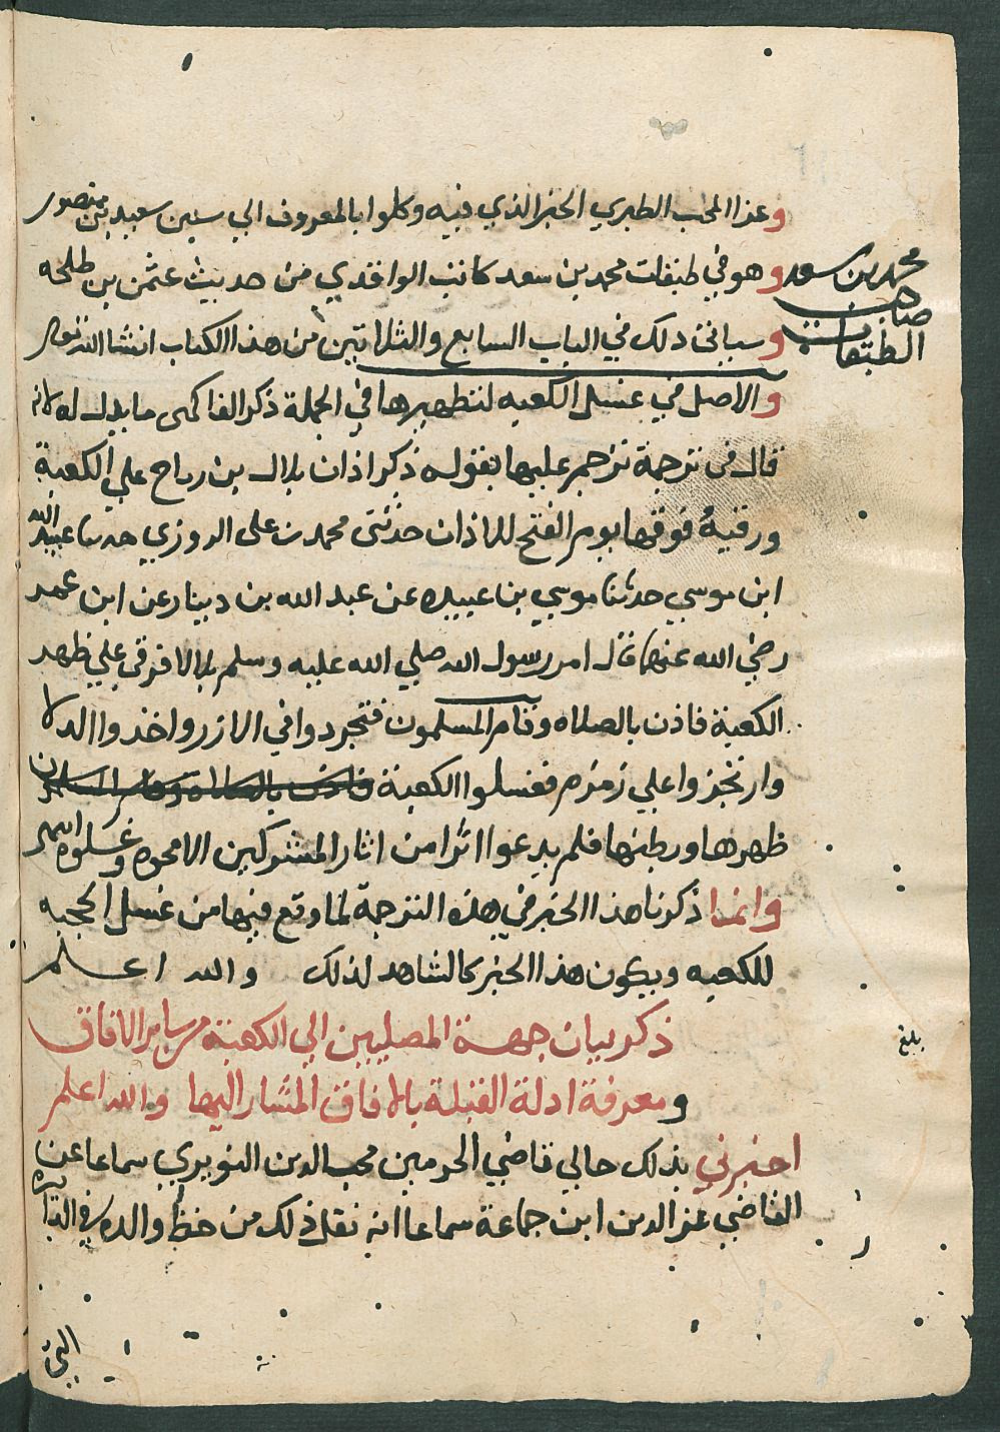 وعزا المحب الطبري الخبر الذي فيه وكلوا بالمعروف الي سنن سعيد بن منصور
وهو في طبقات محمد بن سعد كاتب الواقدي من حديث عثمن بن طلحه
محمد بن سعد
صاحب
الطبقات
وسياتى ذلك في الباب السابع والثلاثين من هذا الكتاب انشا الله تعالى
والاصل في غسل الكعبه لتطهيرها في الجملة ذكر الفاكهى ما يدل له لانه
قال فى ترجمة ترجم عليها بقوله ذكر اذان بلال بن رباح علي الكعبة
ورقيه فوقها يوم الفتح للاذان حدثنى محمد بن على المروزي حدثنا عبيد الله
ابن موسي حدثنا موسي بن عبيده عن عبد الله بن دينار عن ابن عمر
رضي الله عنهما قال امر رسول الله صلي الله عليه وسلم بلالا فرقي علي ظهر
الكعبة فاذن بالصلاه وقام المسلمون فتجردوا في الازر واخذوا الدلا
وارتجزوا علي زمزم فغسلوا الكعبة فاذن بالصلاه وقام المسلمون
ظهرها وبطنها فلم يدعوا اثرا من اثار المشركين الا محوه وغسلوه انتهى
وانما ذكرنا هذا الخبر في هذه الترجمة لما وقع فيها من غسل الحجبه
للكعبه ويكون هذا الخبر كالشاهد لذلك والله اعلم
ذكر بيان جهة المصليين الي الكعبة من ساير الافاق
بلغ
ومعرفة ادلة القبلة بالافاق المشار اليها والله اعلم
اخبرني بذلك خالي قاضي الحرمين محب الدين النويري سماعا عن
القاضي عز الدين ابن جماعة سماعا انه نقل ذلك من خط والده في الدايره
التى